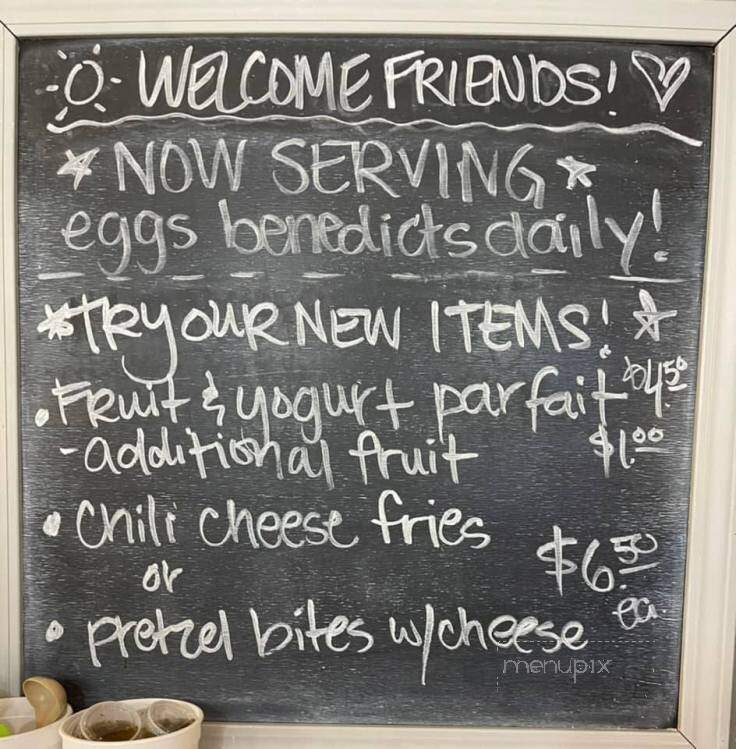 WELCOME FRIENDS!
NOW SERVING
eggs benedicts daily!
*TRY OUR NEW ITEMS!
• Fruit & yogurt parfait $4.50
- additional fruit $1.00
• Chili cheese fries
or
$6.50 ea.
• pretzel bites w/cheese
menupix